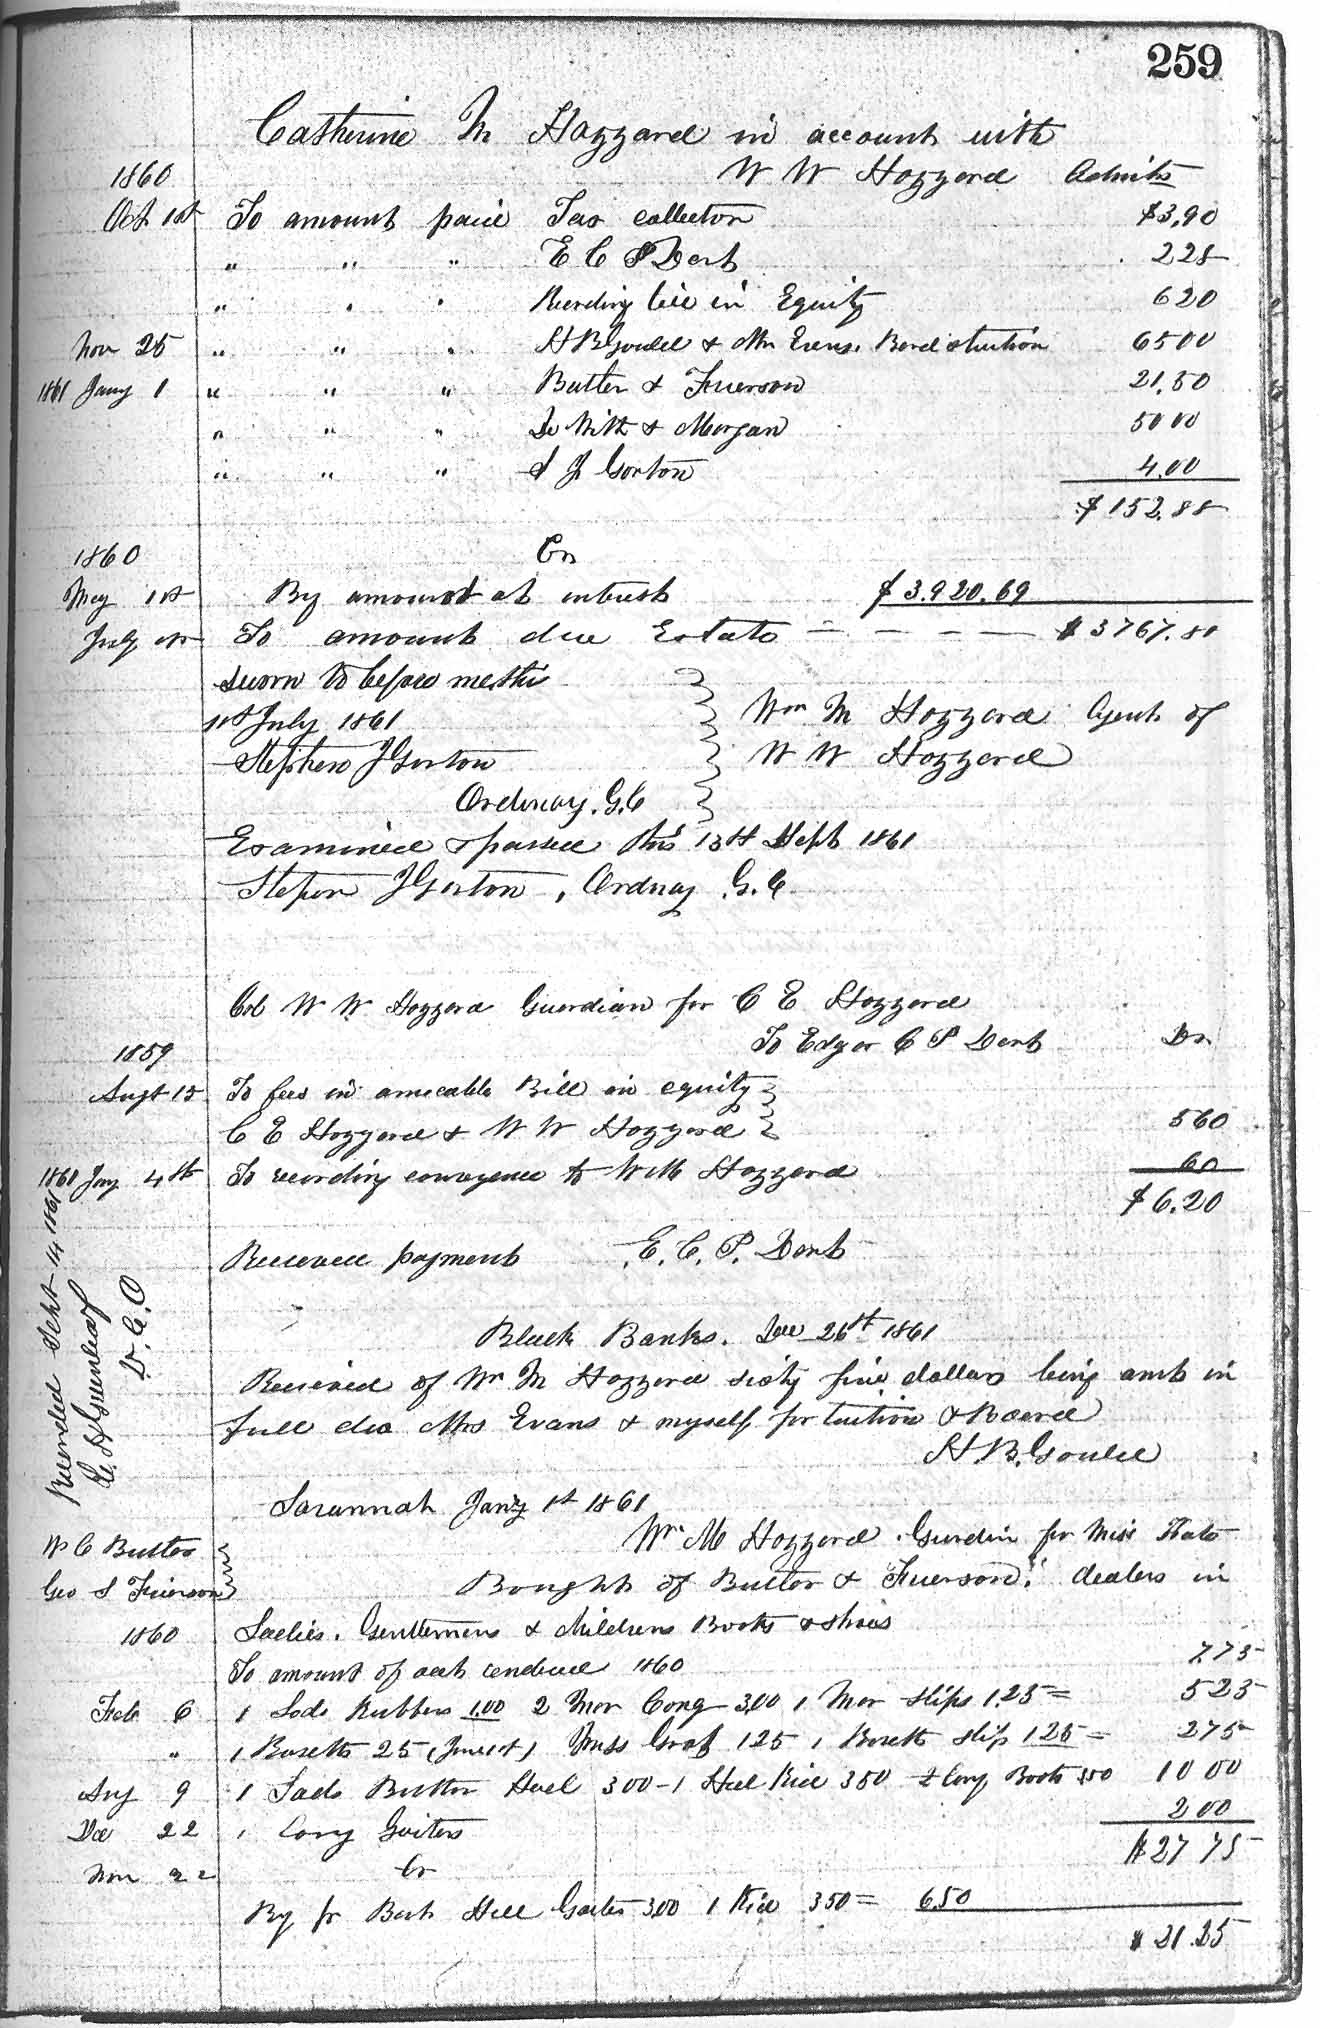 259
Catherine M Hazzard in account with
1860 W W Hazzard Admits
Oct 1st To amount paid Tax collector $3,90
" " " E C P Dart 2 25
" " " Recording bill in Equity 6 20
Nov 25 " " " H B Gould & Mrs Evens. Bord & tuition 65 00
1861 Jany 1 " " " Butler & Frierson 21,50
" " " De Witt & Morgan 50 00
" " " S J Gorton 4,00
$152.85
1860 Cr
May 1st By amount at intrest $3,920.69
July 1st To amount due Estate $3767.80
Sworn to before me this
1st July 1861 Wm M Hazzard Agent of
Stephen J Gorton W W Hazzard
Ordinary. G. C
Examined & passed this 13th Sept 1861
Stephen J Gorton, Ordinary G. C
Col W W Hazzard Guardian for C E Hazzard
To Edgar C P Dart Dr
1859
Augt 15 To fees in amicable Bill in equity
C E Hazzard & W W Hazzard 5 60
1860 Jany 4th To recording conveyence to W M Hazzard 60
$6.20
Received payment E. C. P. Dart
Recorded Sept 14 1861
Greenleaf
D. C. O
Black Banks. Dec 26th 1861
Received of Wm M Hazzard sixty five dollars being amt in
full due Mrs Evans & myself for tuition & Board
H. B. Gould
Savannah Jany 1st 1861
W C Butler Wm M Hazzard Gurdin for Miss Kate
Geo S Frierson Bought of Butler & Frierson, dealers in
1860 Ladies, Gentlemens & childrens Boots & shoes
To amount of acct rendered 1860 7,75
Feb 6 1 Lads Rubbers 1,00 2 Mor Cong 3,00 1 Mor slips 125 = 5 25
" 1 Busetts 25 Miss 125 1 Busetts slip 125 = 2 75
Aug 9 1 Lads Button Heel 300 - 1 Heel Kid 350 Cong Boots 350 10 00
Dec 22 1 Cong Gaiters 2 00
$27 75
Nov 22 Cr
By pr Heel Gaiter 3,00 1 Kid 350 = 6,50
$21.25